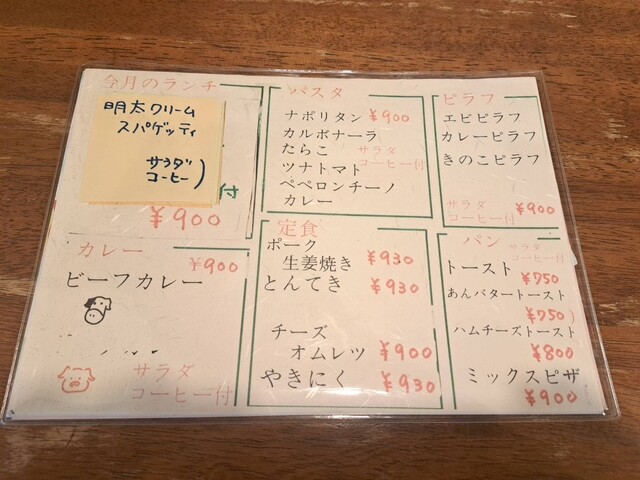 今月のランチ
明太クリーム
スパゲッティ
サラダ
コーヒー)
付
¥900
カレー
¥900
ビーフカレー
サラダ
コーヒー付
パスタ
ナポリタン ¥900
カルボナーラ
たらこ サラダ
ツナトマト コーヒー付
ペペロンチーノ
カレー
定食
ポーク
生姜焼き ¥930
とんてき ¥930
チーズ
オムレツ ¥900
やきにく ¥930
ピラフ
エビピラフ
カレーピラフ
きのこピラフ
サラダ
コーヒー付 ¥900
パン サラダ
コーヒー付
トースト ¥750
あんバタートースト
¥750)
ハムチーズトースト
¥800
ミックスピザ
¥900